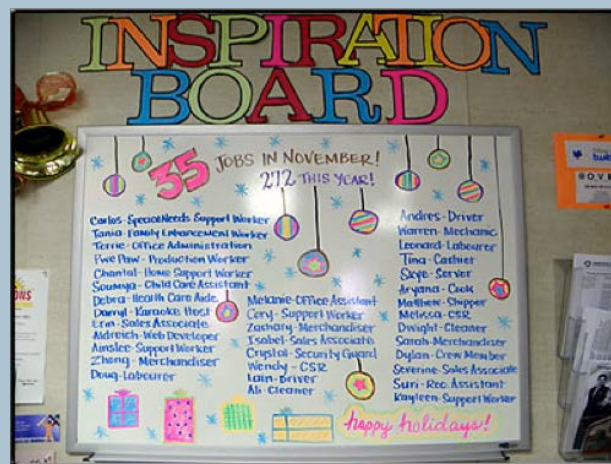 INSPIRATION
BOARD
35 JOBS IN NOVEMBER!
272 THIS YEAR!
Carlos-Special Needs Support Worker
Tania-Family Enhancement Worker
Terrie-Office Administration
Pwe Paw-Production Worker
Chantal-Home Support Worker
Soumya-Child Care Assistant
Debra-Health Care Aide
Darryl-Karaoke Host
Erin-Sales Associate
Aldreich-Web Developer
Ainslee-Support Worker
Zhong-Merchandiser
Doug-Labourer
Melanie-Office Assistant
Cory-Support Worker
Zachary-Merchandiser
Isabel-Sales Associate
Crystal-Security Guard
Wendy-CSR
Iain-Driver
Ali-Cleaner
Andres-Driver
Warren-Mechanic
Leonard-Labourer
Tina-Cashier
Skye-Server
Aryana-Cook
Matthew-Shipper
Melissa-CSR
Dwight-Cleaner
Sarah-Merchandiser
Dylan-Crew Member
Severine-Sales Associate
Suri-Rec. Assistant
Kayleen-Support Worker
happy holidays!